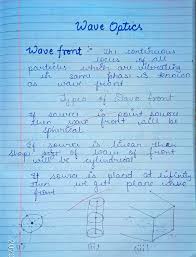 Wave Optics
Wave front :- The continuous
locus of all
particles which are vibrating
in same phase is known
as wave front
Types of Wave front
If source is point source
then wave front will be
spherical
If source is linear then
shape of wave front
will be cylindrical
If source is placed at infinity
then we get plane wave
front
(i) (ii) (iii)